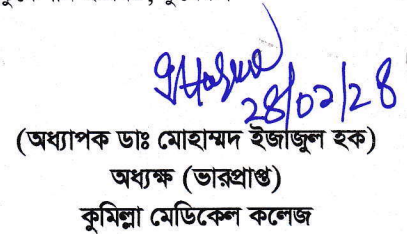 ২৪/০২/২৪
(অধ্যাপক ডাঃ মোহাম্মদ ইজাজুল হক)
অধ্যক্ষ (ভারপ্রাপ্ত)
কুমিল্লা মেডিকেল কলেজ